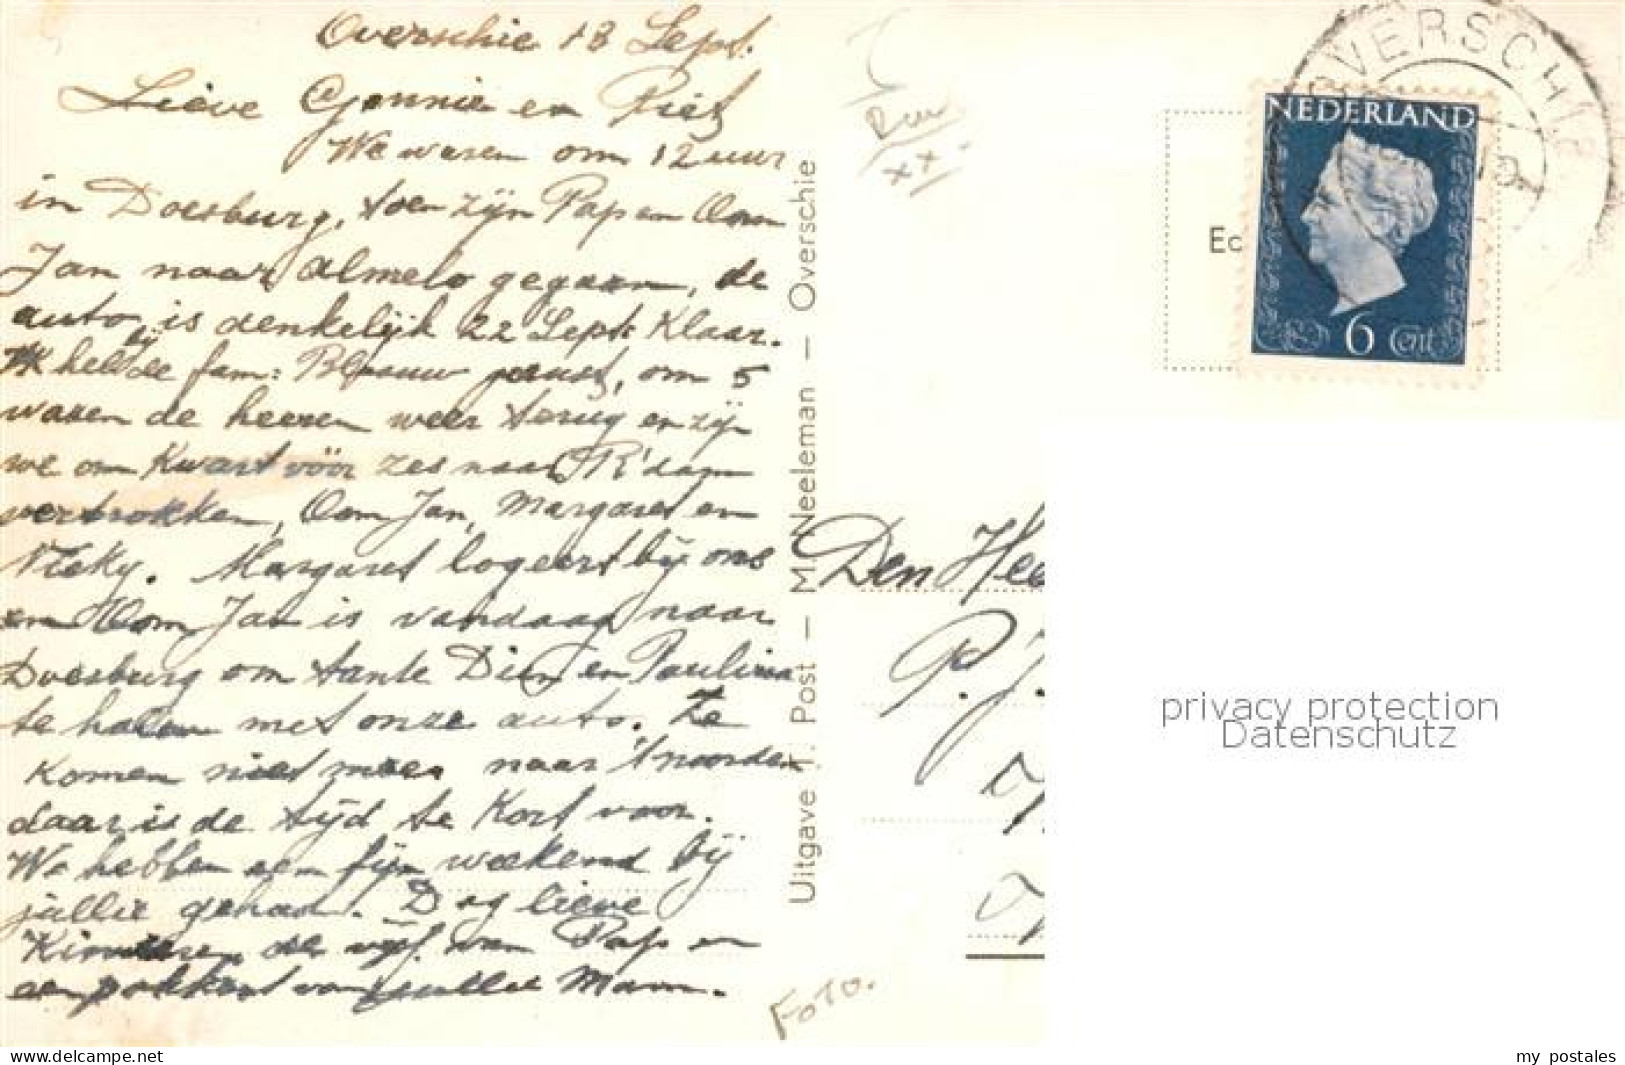 Overschie 18 Sept.
Lieve Gonnie en Piet
We waren om 12 uur
in Doesburg, toen zijn Pap en Oom
Jan naar Almelo gegaan, de
auto is denkelijk 22 Sept. Klaar.
Ik heb bij de fam: Blaauw gerust, om 5
waren de heeren weer terug en zijn
we om Kwart vóór zes naar R'dam
vertrokken, Oom Jan, Margaret en
Nicky. Margaret logeert bij ons
en Oom Jan is vandaag naar
Doesburg om tante Dien en Paulina
te halen met onze auto. Ze
Komen niet meer naar 't noorden
daar is de tijd te Kort voor.
We hebben een fijn weekend bij
jullie gehad. Dag lieve
Kinderen de vijf van Pap en
een pakkert van jullie Mam.
Uitgave J. Post — M. Neeleman — Overschie
xx
Foto.
OVERSCHIE
NEDERLAND
6 Cent
Ec
Den Hee
P. J.
privacy protection
Datenschutz
www.delcampe.net
my_postales